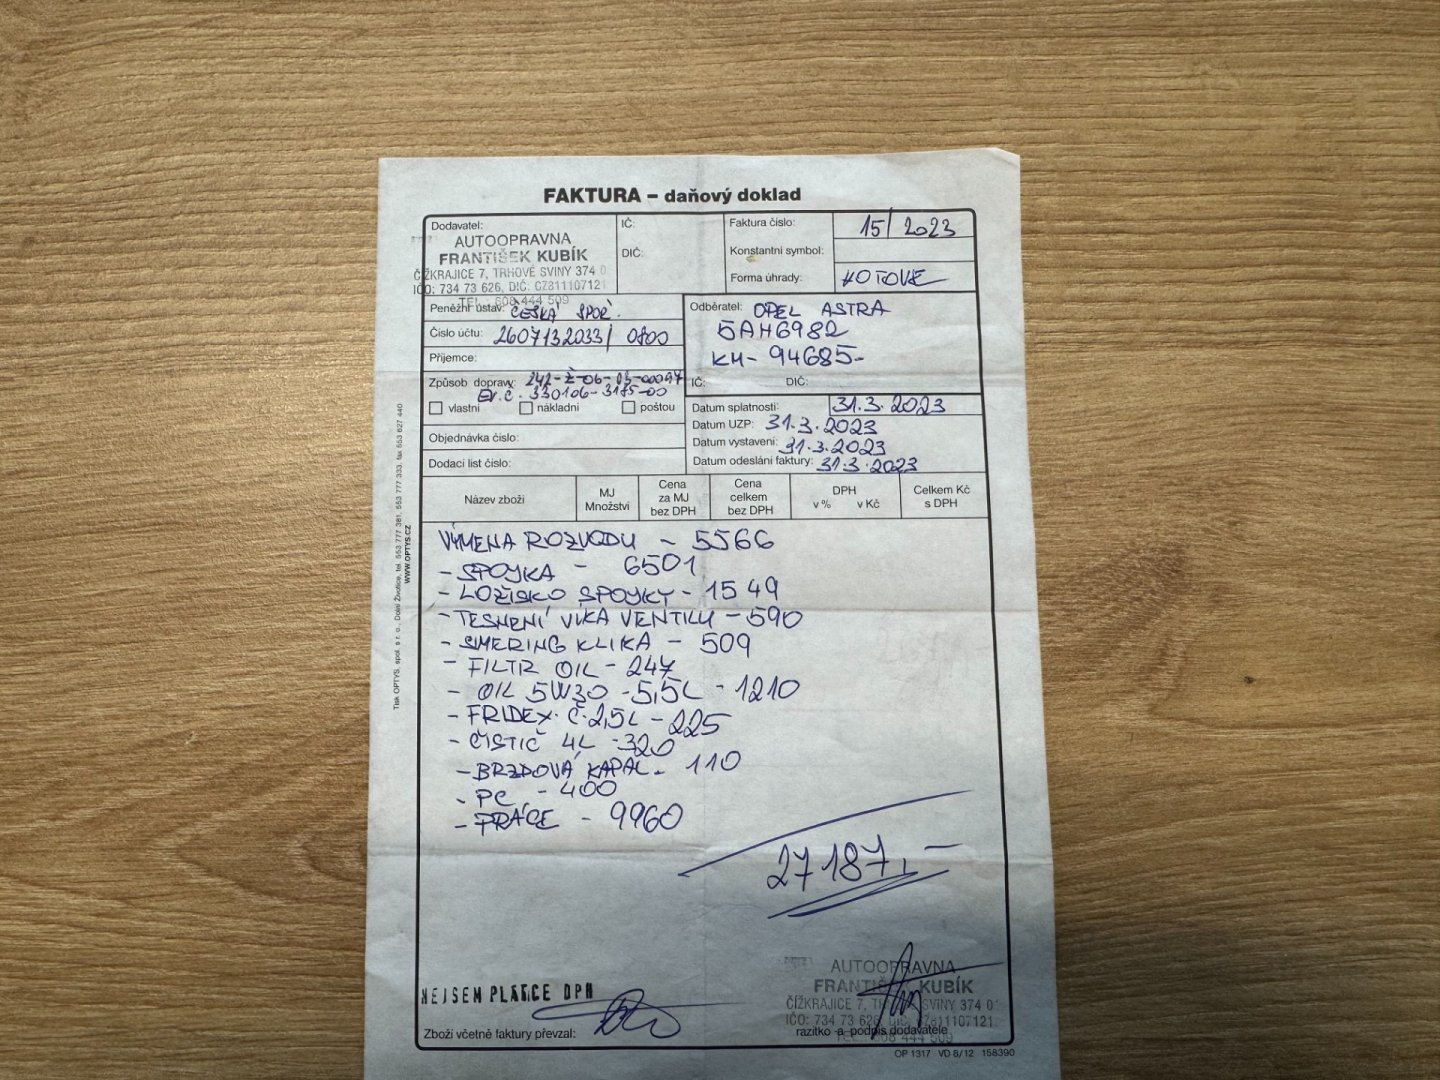 FAKTURA – daňový doklad
Dodavatel:
AUTOOPRAVNA
FRANTIŠEK KUBÍK
ČÍŽKRAJICE 7, TRHOVÉ SVINY 374 0
IČO: 734 73 626, DIČ: CZ811107121
TEL.: 608 444 509
IČ:
DIČ:
Faktura číslo: 15/2023
Konstantní symbol:
Forma úhrady: HOTOVĚ
Peněžní ústav: ČESKÁ SPOŘ.
Číslo účtu: 2607132033/0800
Příjemce:
Způsob dopravy: 242-Ž-06-03-00097
Ev.č. 330106-3185-00
vlastní nákladní poštou
Objednávka číslo:
Dodací list číslo:
Odběratel: OPEL ASTRA
5AH6982
KM- 94685-
IČ: DIČ:
Datum splatnosti: 31.3.2023
Datum UZP: 31.3.2023
Datum vystavení: 31.3.2023
Datum odeslání faktury: 31.3.2023
Název zboží
MJ
Množství
Cena
za MJ
bez DPH
Cena
celkem
bez DPH
DPH
v % v Kč
Celkem Kč
s DPH
VÝMĚNA ROZVODU - 5566
- SPOJKA - 6501
- LOŽISKO SPOJKY - 1549
- TESNENÍ VIKA VENTILU - 590
- SMERING KLIKA - 509
- FILTR OIL - 247
- OIL 5W30 - 5,5L - 1210
- FRIDEX. Č. 2,5L - 225
- ČISTIČ 4L - 320
- BRZDOVÁ KAPAL. 110
- PC - 400
- PRÁCE - 9960
27187,-
NEJSEM PLÁTCE DPH
Zboží včetně faktury převzal:
AUTOOPRAVNA
FRANTIŠEK KUBÍK
ČÍŽKRAJICE 7, TRHOVÉ SVINY 374 0
IČO: 734 73 626, DIČ: CZ811107121
TEL.: 608 444 509
razítko a podpis dodavatele
OP 1317 VD 8/12 158390
Tisk OPTYS, spol. s r. o., Dolní Životice, tel. 553 777 381, 553 777 333, fax 553 627 440
WWW.OPTYS.CZ